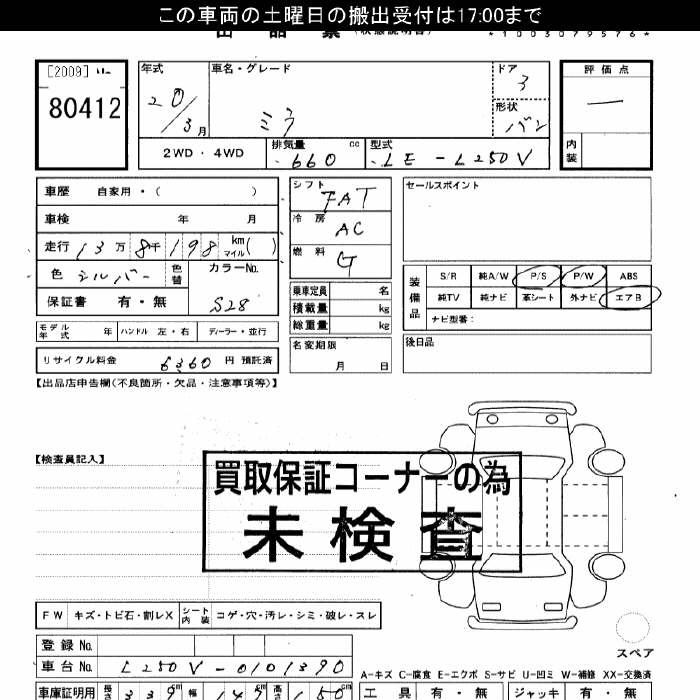 この車両の土曜日の搬出受付は17:00まで
出品票 (状態説明書) *1003079576*
[2009]
80412
年式 車名・グレード ドア 評価点
20/3月 ミラ 3 —
形状 バン
内装
2WD ・ 4WD 排気量 cc 660 型式 LE - L250V
車歴 自家用・( )
車検 年 月
走行 13万8千198 km マイル( )
色 シルバー 色替 カラーNo. S28
保証書 有・無
シフト FAT
冷房 AC
燃料 G
乗車定員 名
積載量 kg
総重量 kg
セールスポイント
装備品 S/R 純A/W P/S P/W ABS
純TV 純ナビ 革シート 外ナビ エアB
ナビ型番:
モデル年式 年 ハンドル 左・右 ディーラー・並行
名変期限 月 日
後日品
リサイクル料金 6360 円 預託済
【出品店申告欄(不良箇所・欠品・注意事項等)】
【検査員記入】
買取保証コーナーの為
未検査
FW キズ・トビ石・割レX シート内装 コゲ・穴・汚レ・シミ・破レ・スレ
登録No.
車台No. L250V-0101390
スペア
A-キズ C-腐食 E-エクボ S-サビ U-凹ミ W-補修 XX-交換済
車庫証明用 長さ 339cm 幅 147cm 高さ 150cm 工具 有・無 ジャッキ 有・無